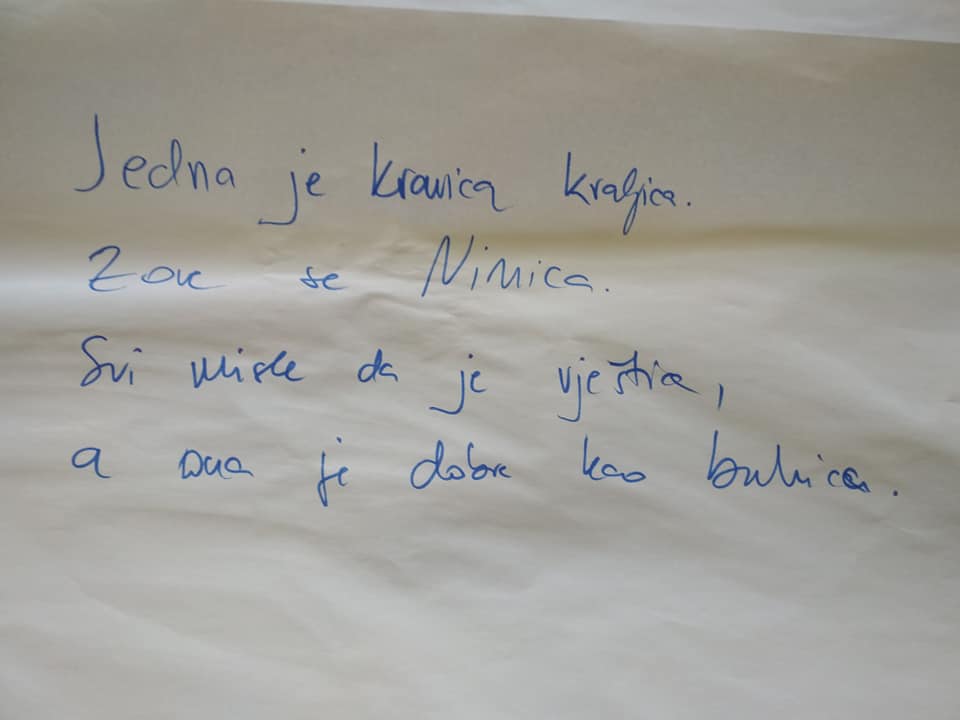 Jedna je kravica kraljica.
Zove se Nimica.
Svi misle da je vještica,
a ona je dobra kao bubica.